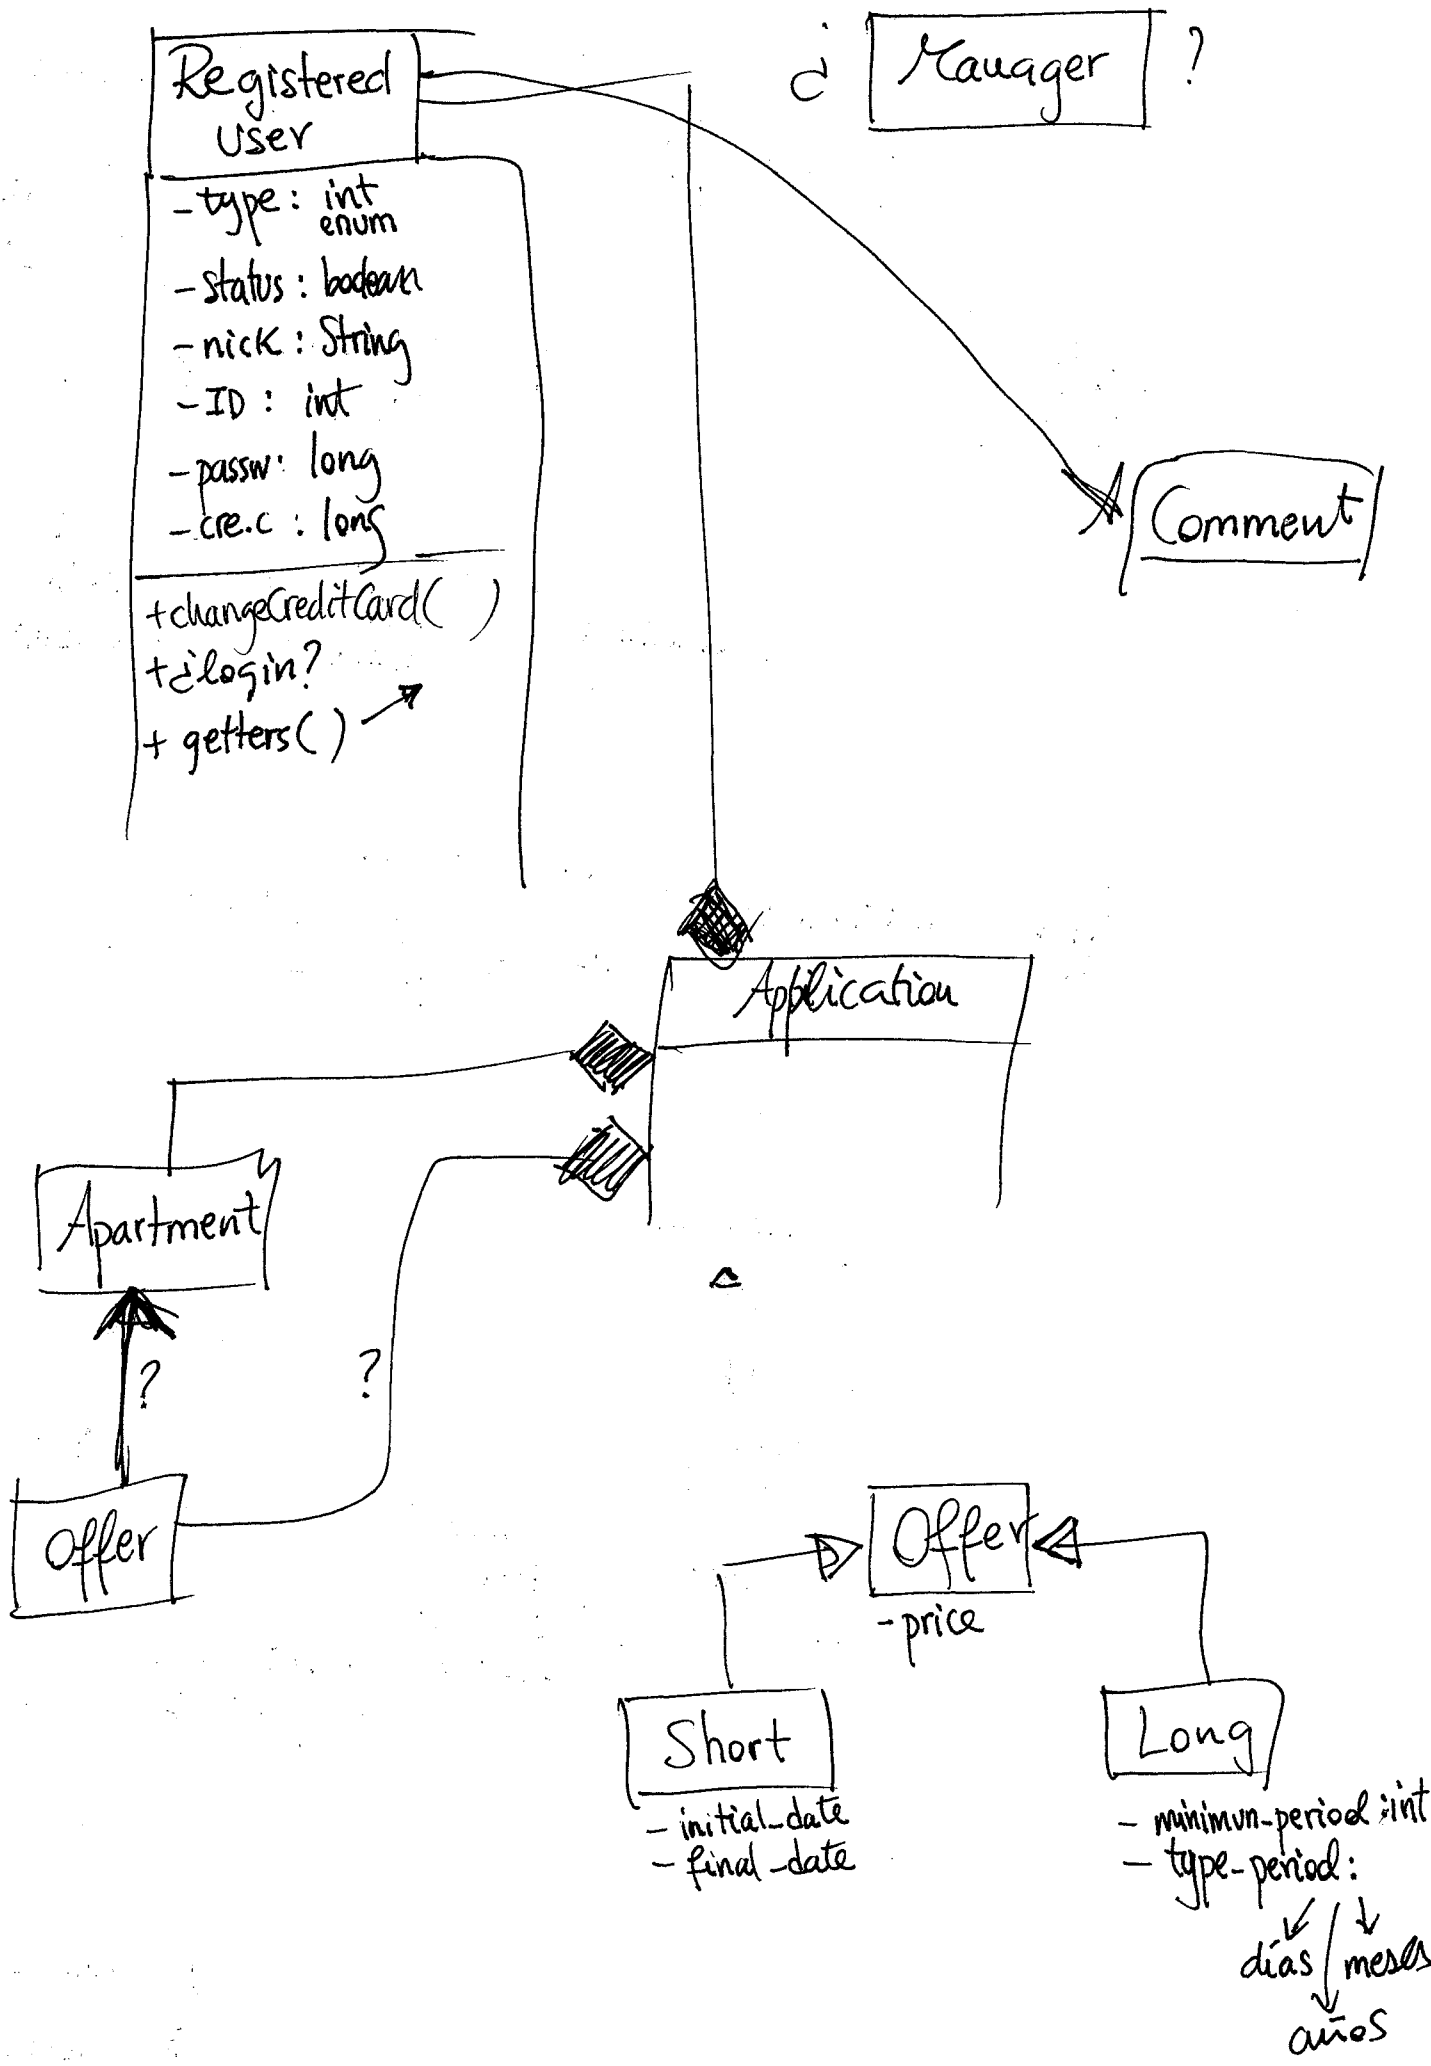 Registered
user
¿ Manager ?
- type : int
enum
- status : boolean
- nick : String
- ID : int
- passw : long
- cre.c : long
+ changeCreditCard( )
+ ¿login?
+ getters( )
Comment
Application
Apartment
?
?
Offer
Offer
- price
Short
- initial_date
- final_date
Long
- minimun-period : int
- type-period :
días / meses
años